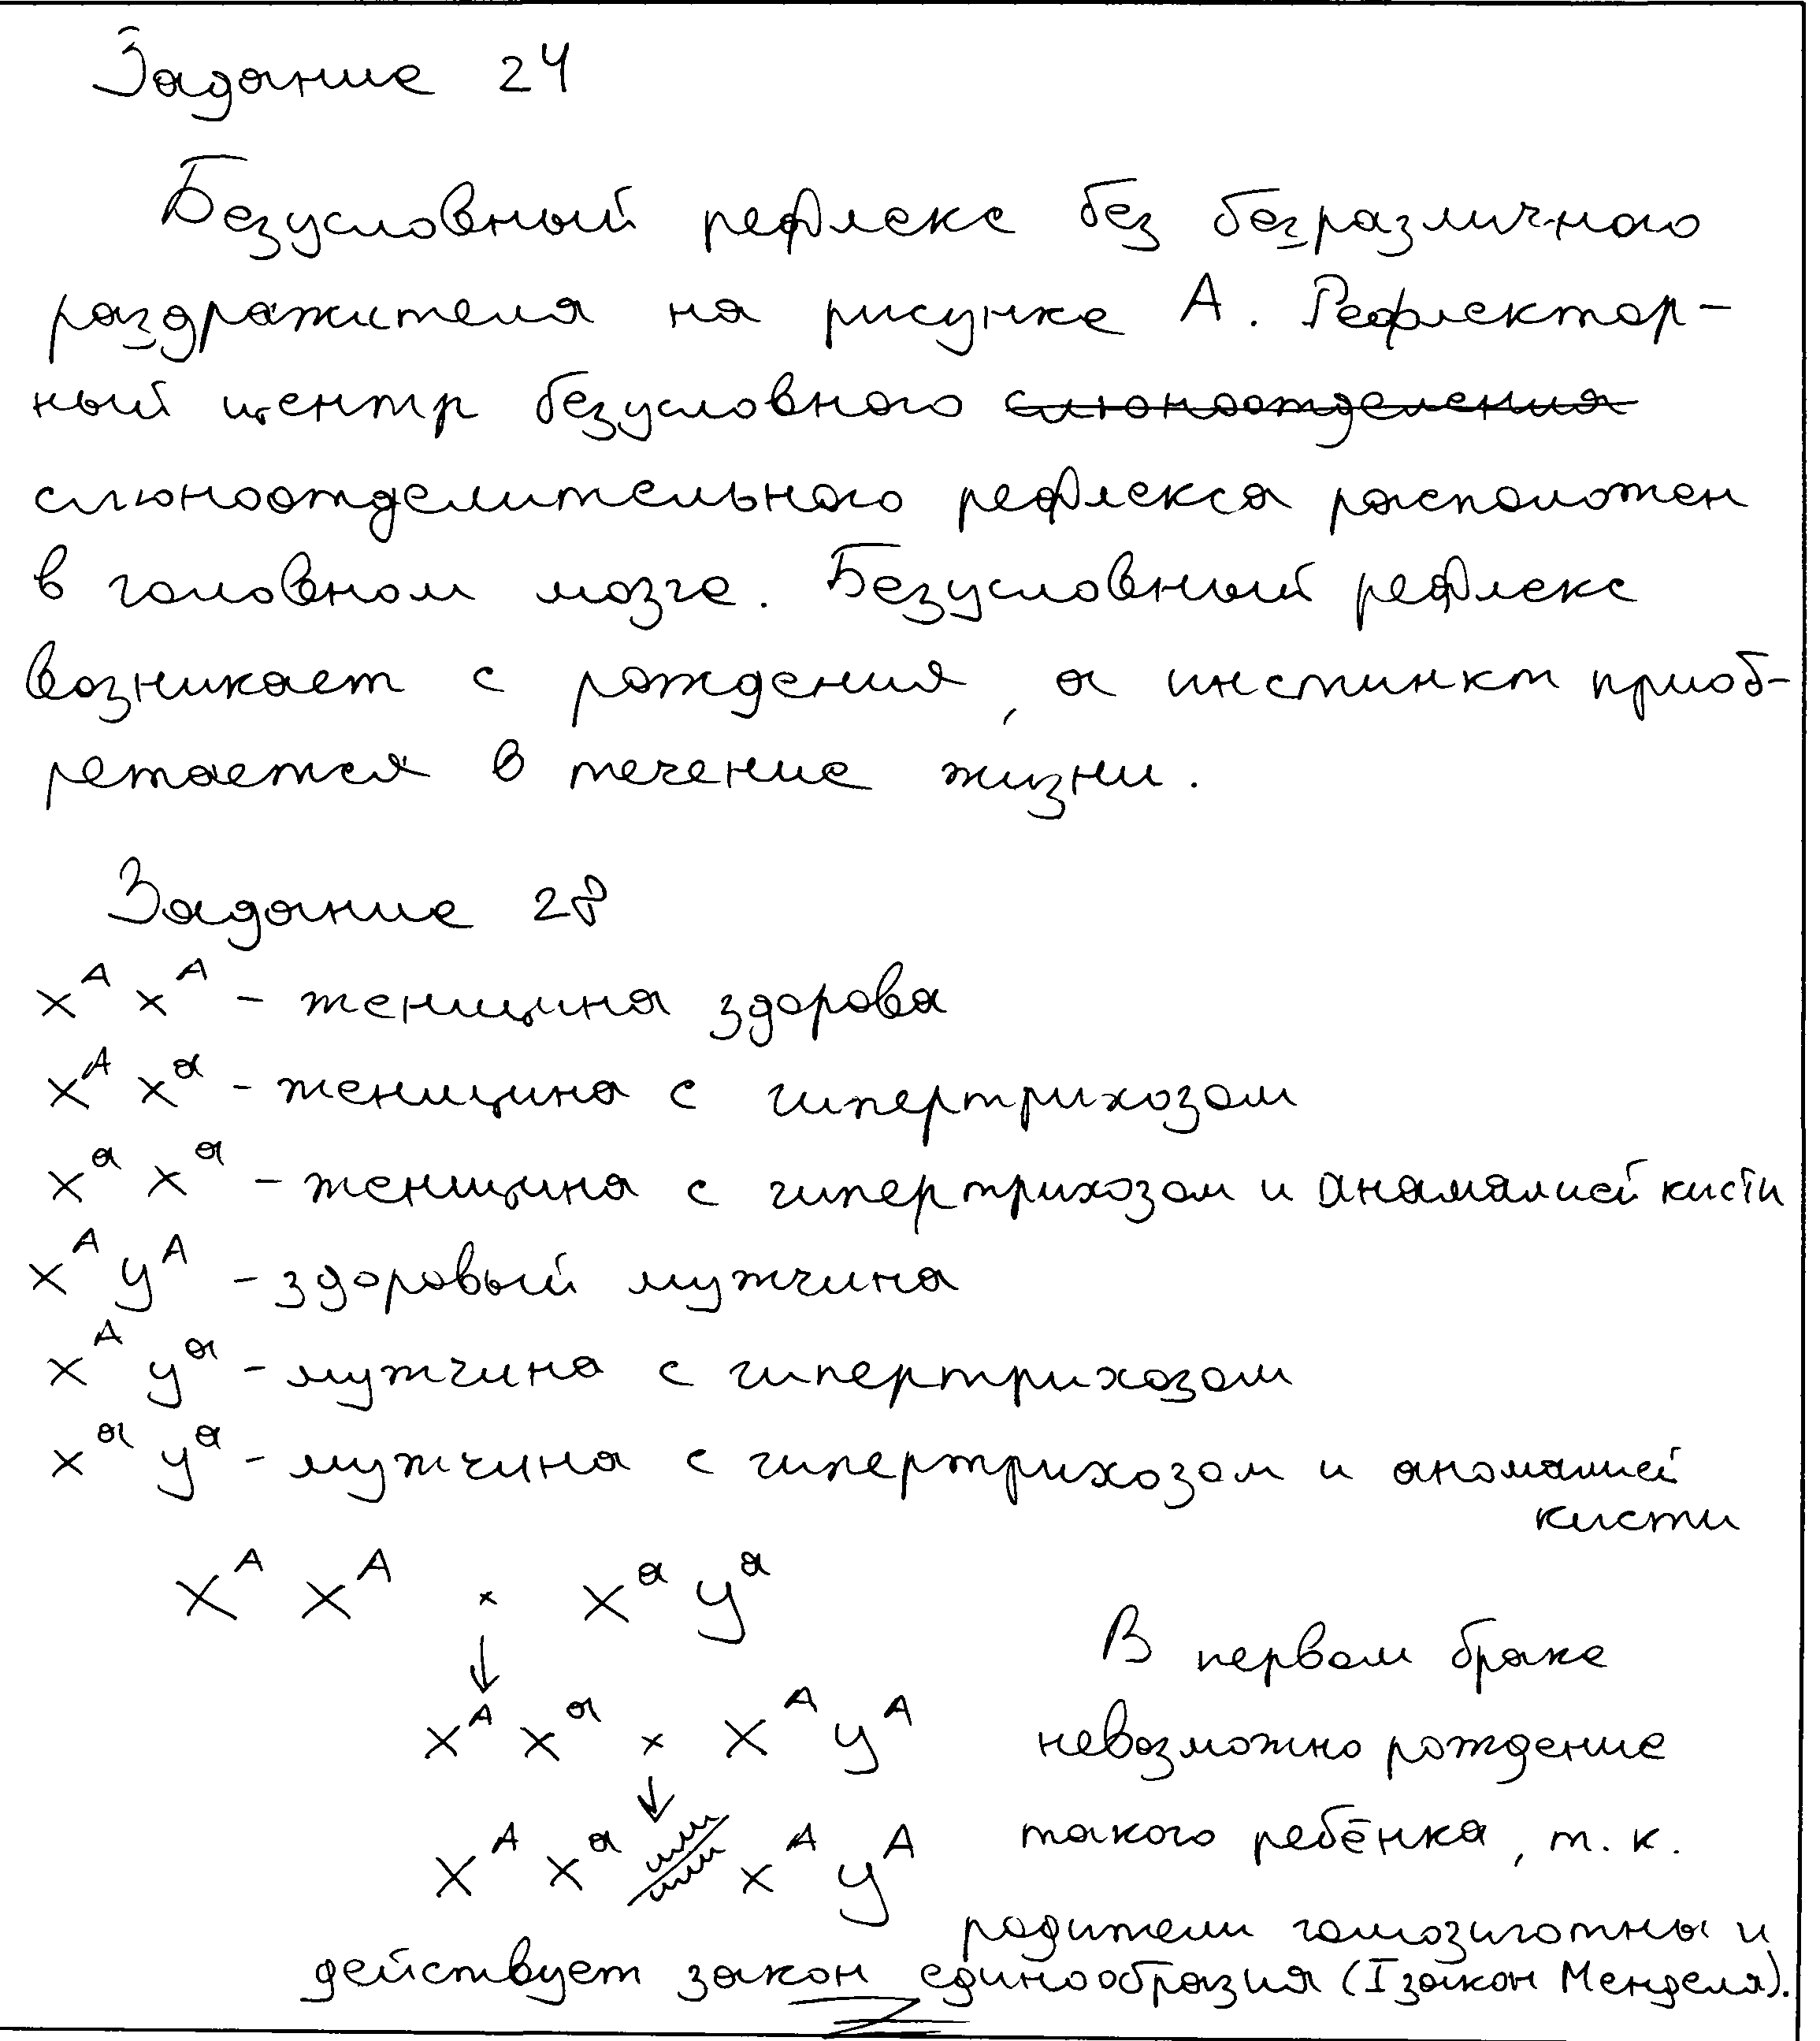 Задание 24
Безусловный рефлекс без безразличного
раздражителя на рисунке А. Рефлектор-
ный центр безусловного слюноотделения
слюноотделительного рефлекса расположен
в головном мозге. Безусловный рефлекс
возникает с рождения, а инстинкт приоб-
ретается в течение жизни.
Задание 28
X^A X^A - женщина здорова
X^A X^a - женщина с гипертрихозом
X^a X^a - женщина с гипертрихозом и аномалией кисти
X^A У^A - здоровый мужчина
X^A У^a - мужчина с гипертрихозом
X^a У^a - мужчина с гипертрихозом и аномалией
кисти
X^A X^A × X^a У^a
↓
В первом браке
X^A X^a × X^A У^A
невозможно рождение
↓
X^A X^a или X^A У^A
такого ребёнка, т. к.
родители гомозиготны и
действует закон единообразия (I закон Менделя).